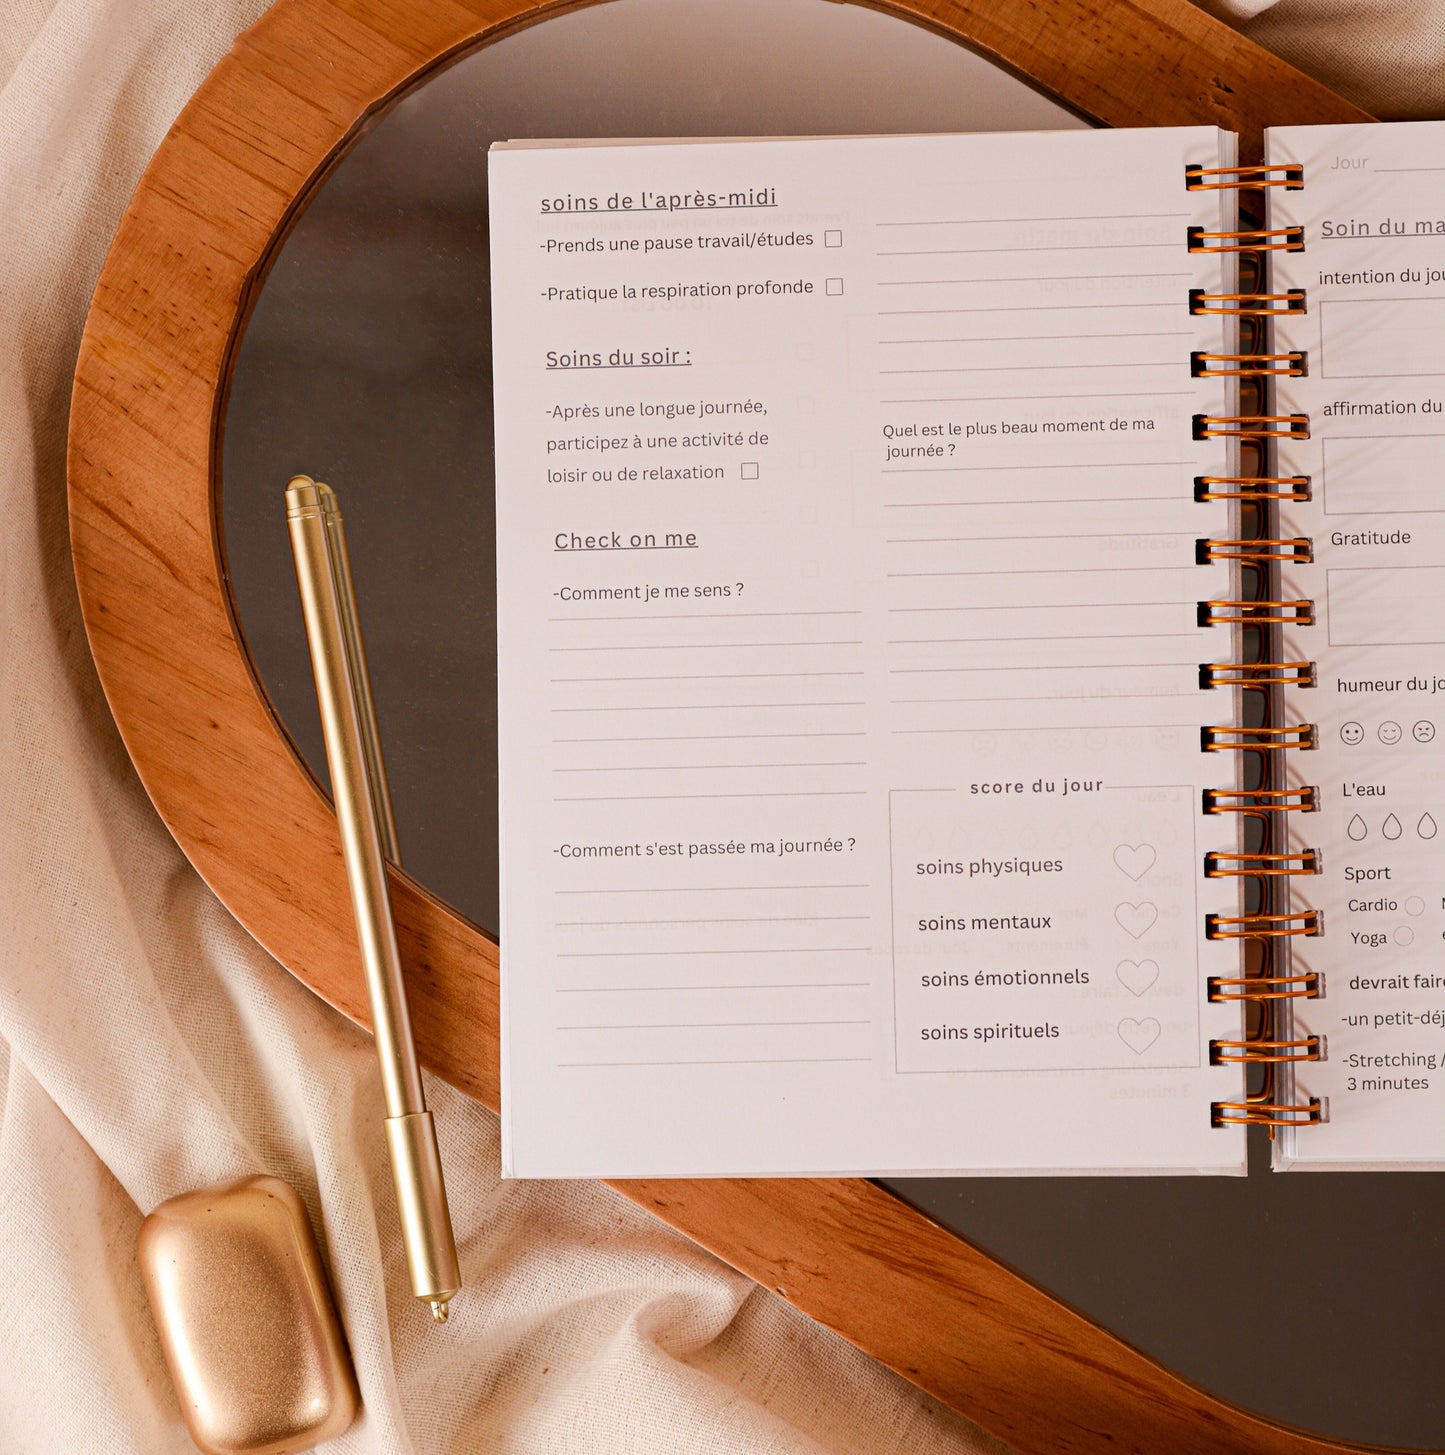 soins de l'après-midi
-Prends une pause travail/études
-Pratique la respiration profonde
Soins du soir :
-Après une longue journée,
participez à une activité de
loisir ou de relaxation
Check on me
-Comment je me sens ?
-Comment s'est passée ma journée ?
Quel est le plus beau moment de ma
journée ?
score du jour
soins physiques
soins mentaux
soins émotionnels
soins spirituels
Jour
Soin du
intention du
affirmation du
Gratitude
humeur du
L'eau
Sport
Cardio
Yoga
devrait
-un
-Stretching /
3 minutes